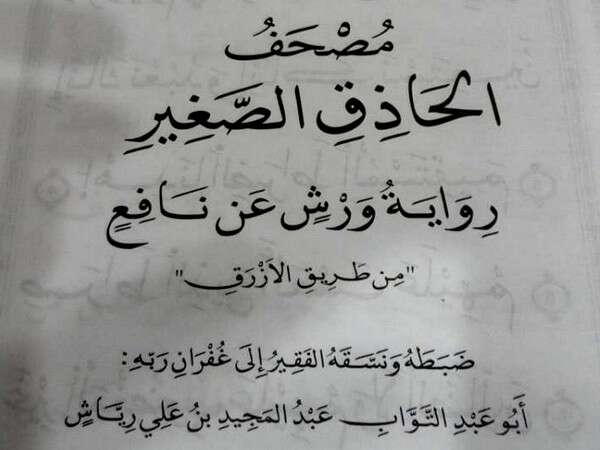 مُصْحَفُ
الحَاذِقِ الصَّغِيرِ
رِوَايَةُ وَرْشٍ عَن نَافِعٍ
"مِن طَرِيقِ الأَزْرَقِ"
ضَبَطَهُ وَنَسَّقَهُ الفَقِيرُ إِلَى غُفْرَانِ رَبِّهِ :
أَبُو عَبْدِ التَّوَّابِ عَبْدُ المَجِيدِ بنُ عَلِي رِيَّاشٍ